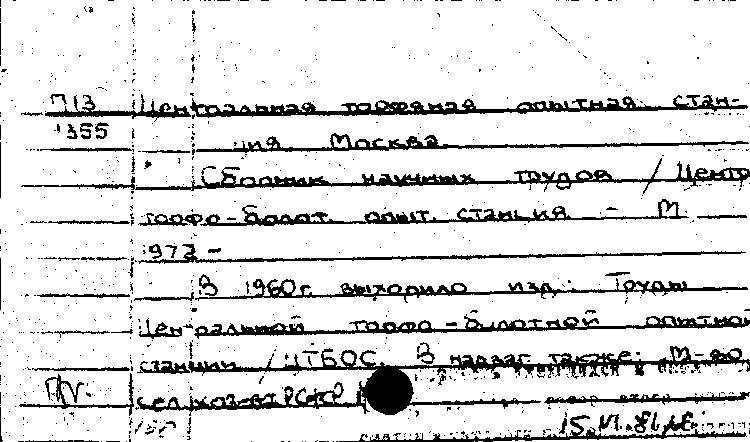 П13 Центральная торфяная опытная стан-
1355
ция. Москва.
Сборник научных трудов / Центр.
торфо-болот. опыт. станция - М.
1972 -
В 1960г. выходило изд.: Труды
Центральной торфо-болотной опытной
станции /ЦТБОС. В надзаг. также: М-во
сел. хоз-ва РСФСР
15.VI.81